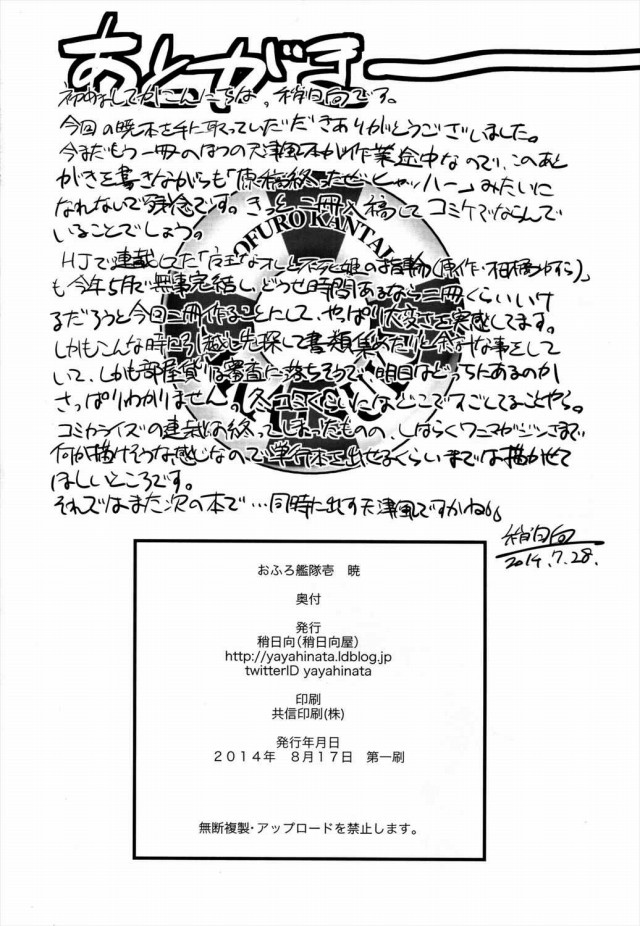 あとがき
初めましてかこんにちは、稍日向です。
今回の暁本を手に取っていただきありがとうございました。
今まだもう一冊のはつの天津風本が作業途中なので、このあと
がきを書きながらも「原稿終ったぜヒャッハー」みたいに
なれないで残念です。きっと二冊入稿してコミケでならんで
いることでしょう。
OFURO KANTAI
HJで連載してた「的なオレと不死姫の指輪(原作・柑橘ゆすら)」
も今年5月で無事完結し、どうせ時間あるなら二冊くらいいけ
るだろうと今回二冊作ることにして、やっぱり大変さを実感してます。
しかもこんな時に引越し先探して書類集めたりと余計な事をして
いて、しかも部屋借りは審査に落ちそうで、明日はどっちにあるのか
さっぱりわかりません。冬コミくらいにはどこですごしてることやら。
コミカライズの連載は終ってしまったものの、しばらくワニマガジンさまで
何か描けそうな感じなので、単行本1コ出せるくらいまでは描かせて
ほしいところです。
それではまた次の本で…同時に出す天津風ですかね。
稍日向
2014.7.28.
おふろ艦隊壱 暁
奥付
発行
稍日向(稍日向屋)
http://yayahinata.ldblog.jp
twitterID yayahinata
印刷
共信印刷(株)
発行年月日
2014年 8月17日 第一刷
無断複製・アップロードを禁止します。